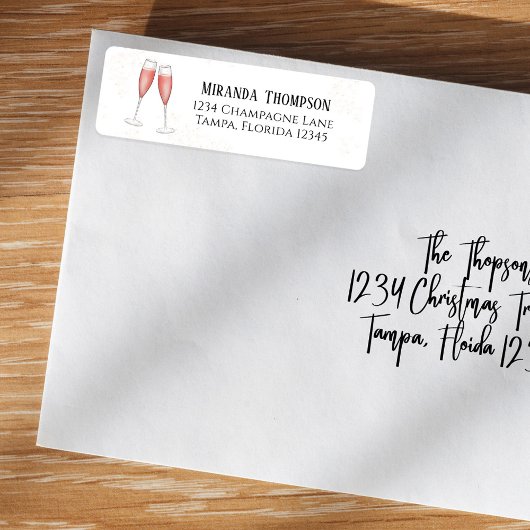 Miranda Thompson
1234 Champagne Lane
Tampa, Florida 12345
The Thopson
1234 Christmas Tr
Tampa, Floida 123